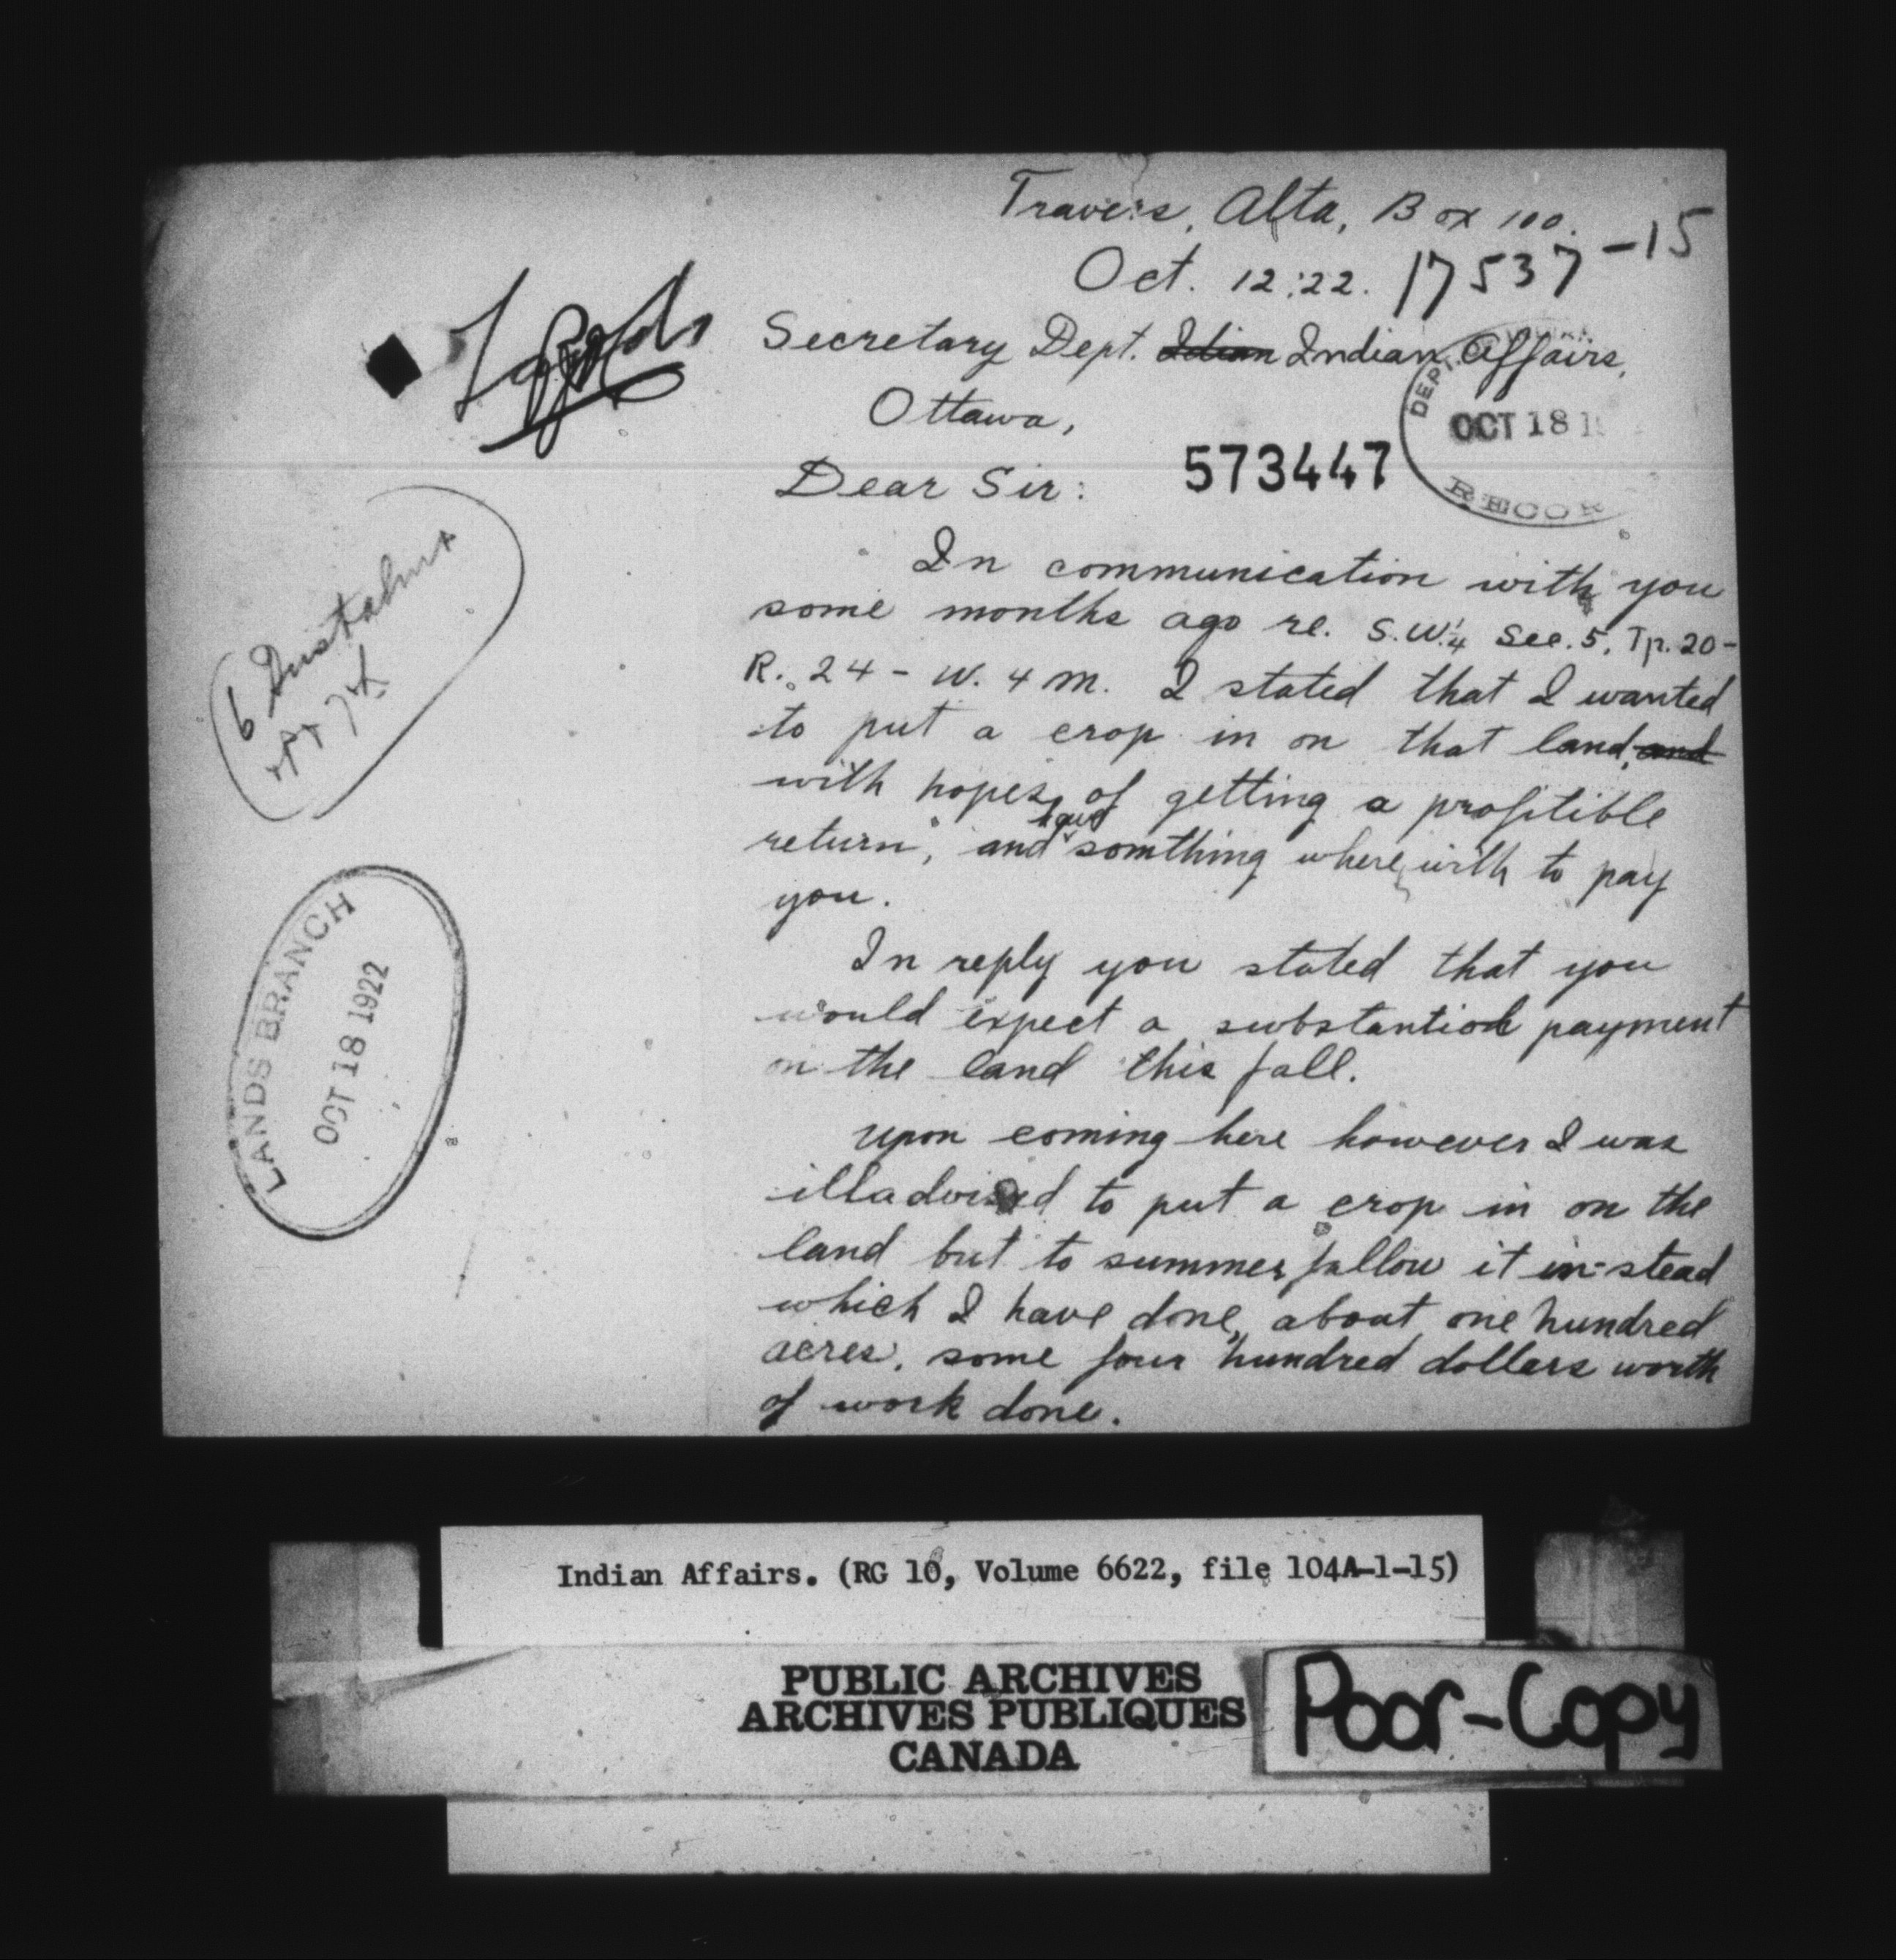 Travers, Alta, Box 100.
Oct. 12:22. 17537-15
Secretary Dept. Idian Indian Affairs,
Ottawa,
DEPT.
OCT 18 1
RECOR
573447
Dear Sir:
In communication with you
some months ago re. S.W.¼ Sec. 5, Tp. 20-
R. 24 - W. 4 M. I stated that I wanted
to put a crop in on that land, and
with hopes of getting a profitible
return, and have somthing where with to pay
you.
In reply you stated that you
would expect a substantial payment
on the land this fall.
Upon coming here however I was
illadvised to put a crop in on the
land but to summer fallow it in-stead
which I have done, about one hundred
acres, some four hundred dollars worth
of work done.
6
LANDS BRANCH
OCT 18 1922
Indian Affairs. (RG 10, Volume 6622, file 104A-1-15)
PUBLIC ARCHIVES
ARCHIVES PUBLIQUES
CANADA
Poor-Copy